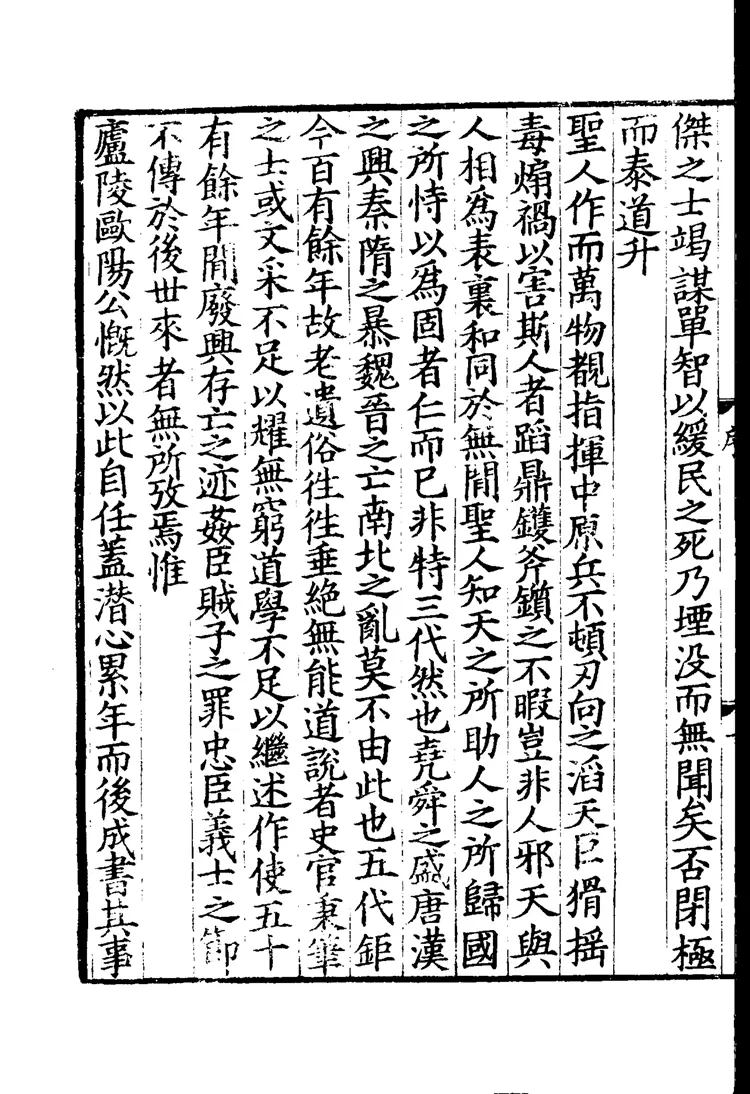 傑之士竭謀單智以緩民之死乃堙没而無聞矣否閉極
而泰道升
聖人作而萬物覩指揮中原兵不頓刃向之滔天巨猾揺
毒煽禍以害斯人者蹈鼎鑊斧鑕之不暇豈非人邪天與
人相爲表裏和同於無間聖人知天之所助人之所歸國
之所恃以爲固者仁而已非特三代然也堯舜之盛唐漢
之興秦隋之暴魏晉之亡南北之亂莫不由此也五代鉅
今百有餘年故老遺俗徃徃垂絶無能道説者史官秉筆
之士或文采不足以耀無窮道學不足以繼述作使五十
有餘年間廢興存亡之迹姦臣賊子之罪忠臣義士之節
不傳於後世來者無所攷焉惟
廬陵歐陽公慨然以此自任蓋潜心累年而後成書其事
序